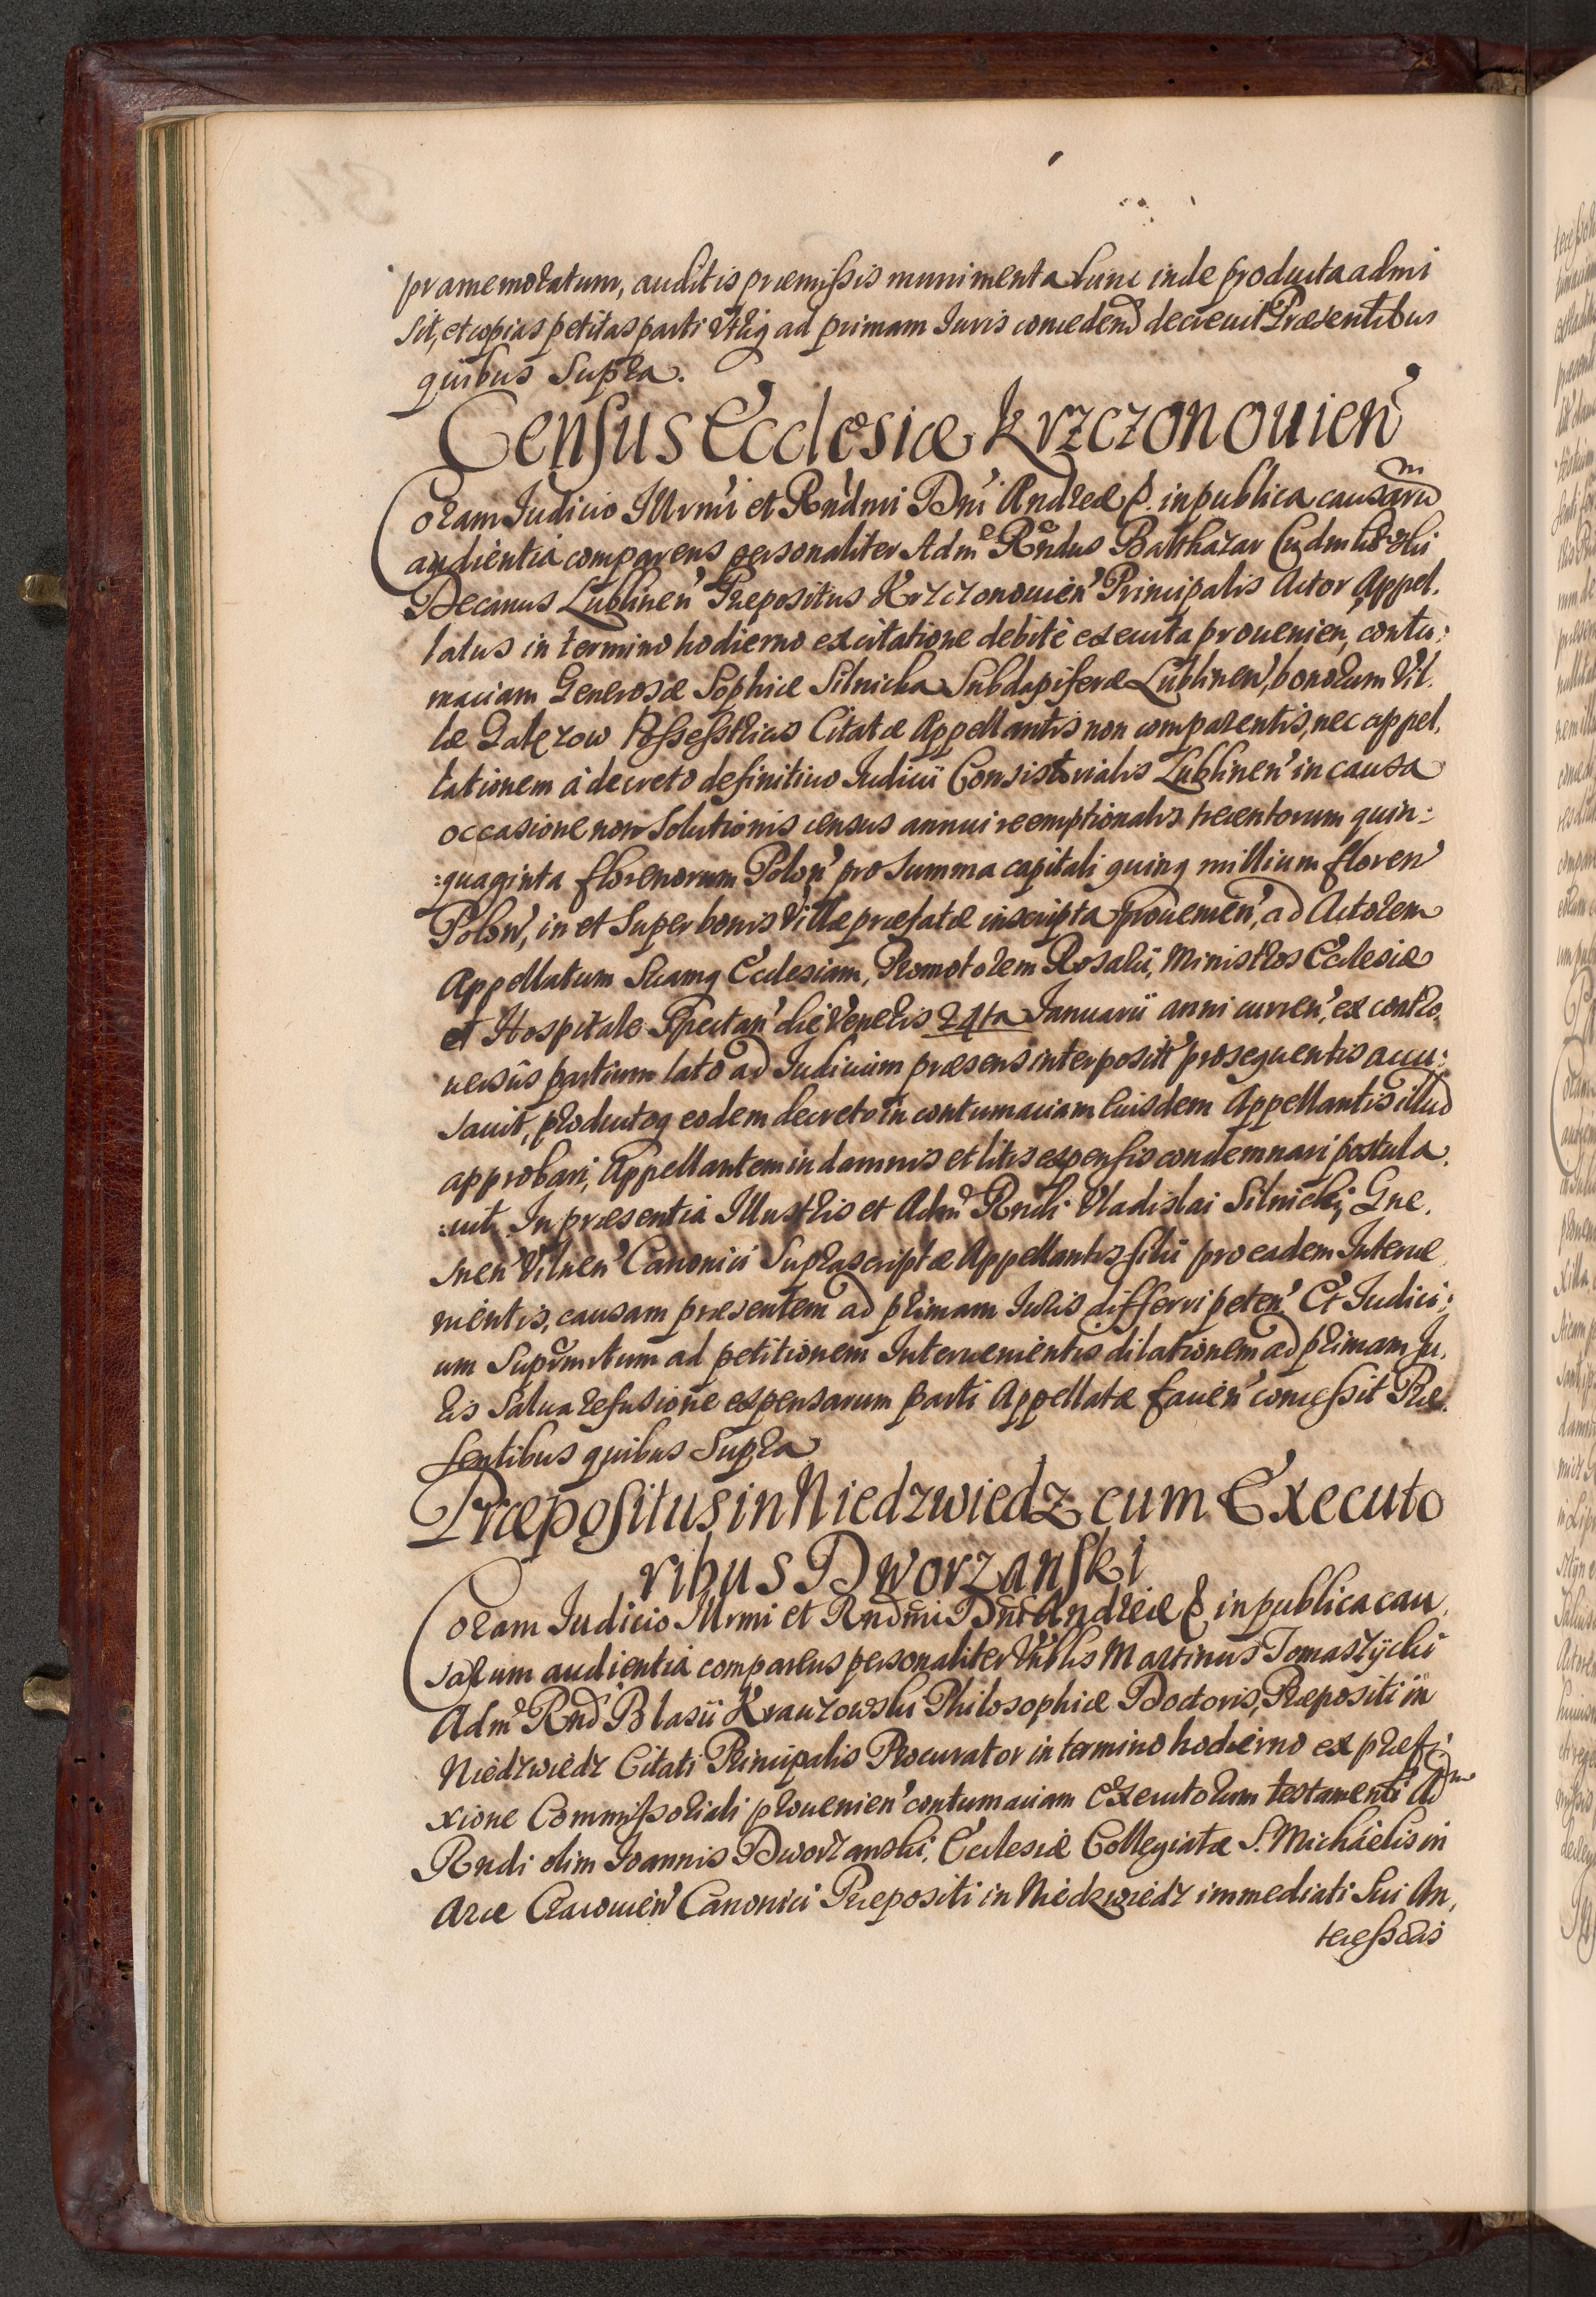 præmemoratum, auditis præmissis munimenta hinc inde producta admi
sit, et copias petitas parti utriq ad primam Iuris concedend decrevit Præsentibus
quibus Supra.
Census Ecclesiæ Krzczonouien
Coram Iudicio Illrmi et Rndmi Dni Andreæ &. in publica causarum
audientia comparens personaliter Admd Rndus Balthazar
Decanus Lublinen Præpositus Krzczonouien Principalis Actor Appel.
latus in termino hodierno ex citatione debitè executa prouenien, contu:
maciam Generosæ Sophiæ Silnicka Subdapiferæ Lublinen, bonorum Vil.
læ Possessricis Citatæ Appellantis non comparentis, nec appel,
lationem à decreto definitiuo Iudicii Consistorialis Lublinen in causa
occasione non Solutionis census annui reemptionalis trecentorum quin:
:quaginta florenorum Polon pro Summa capitali quinq millium floren
Polon, in et Super bonis Villæ præfatæ inscripta prouenien, ad Actorem
Appellatum Suamq Ecclesiam, Promotorem Rosarii, Ministros Ecclesiæ
et Hospitale Spectan die Veneris 24ta Ianuarii anni curren, ex contro.
uersiis partium lato ad Iudicium præsens interposit prosequentis accu:
sauit, productoq eodem decreto in contumaciam Eiusdem Appellantis illud
approbari, Appellantem in damnis et litis expensis condemnari postula.
:uit. In præsentia Illustris et Admd Rndi Vladislai Silnicki, Gne.
snen Vilnen Canonici Suprascriptæ Appellantis filii pro eadem Interue
nientis, causam præsentem ad primam Iuris differri peten Et Iudici:
um Suprmntum ad petitionem Interuenientis dilationem ad primam Iu.
ris Salua refusione expensarum parti Appellatæ fauen concessit Præ.
sentibus quibus Supra
Præpositus in Niedzwiedz cum Executo
ribus Dworzanski
Coram Iudicio Illrmi et Rndmi Dni Andreæ & in publica cau
sarum audientia comparens personaliter Nblis Martinus Tomaszycki
Admd Rnd Blasii Krauzowski Philosophiæ Doctoris, Præpositi in
Niedzwiedz Citati Principalis Procurator in termino hodierno ex præfi
xione Commissoriali prouenien contumaciam Executorum testamenti Adm
Rndi olim Ioannis Dworzanski, Ecclesiæ Collegiatæ S. Michaelis in
Arce Cracouien Canonici Præpositi in Niedzwiedz immediati Sui An,
tecessoris